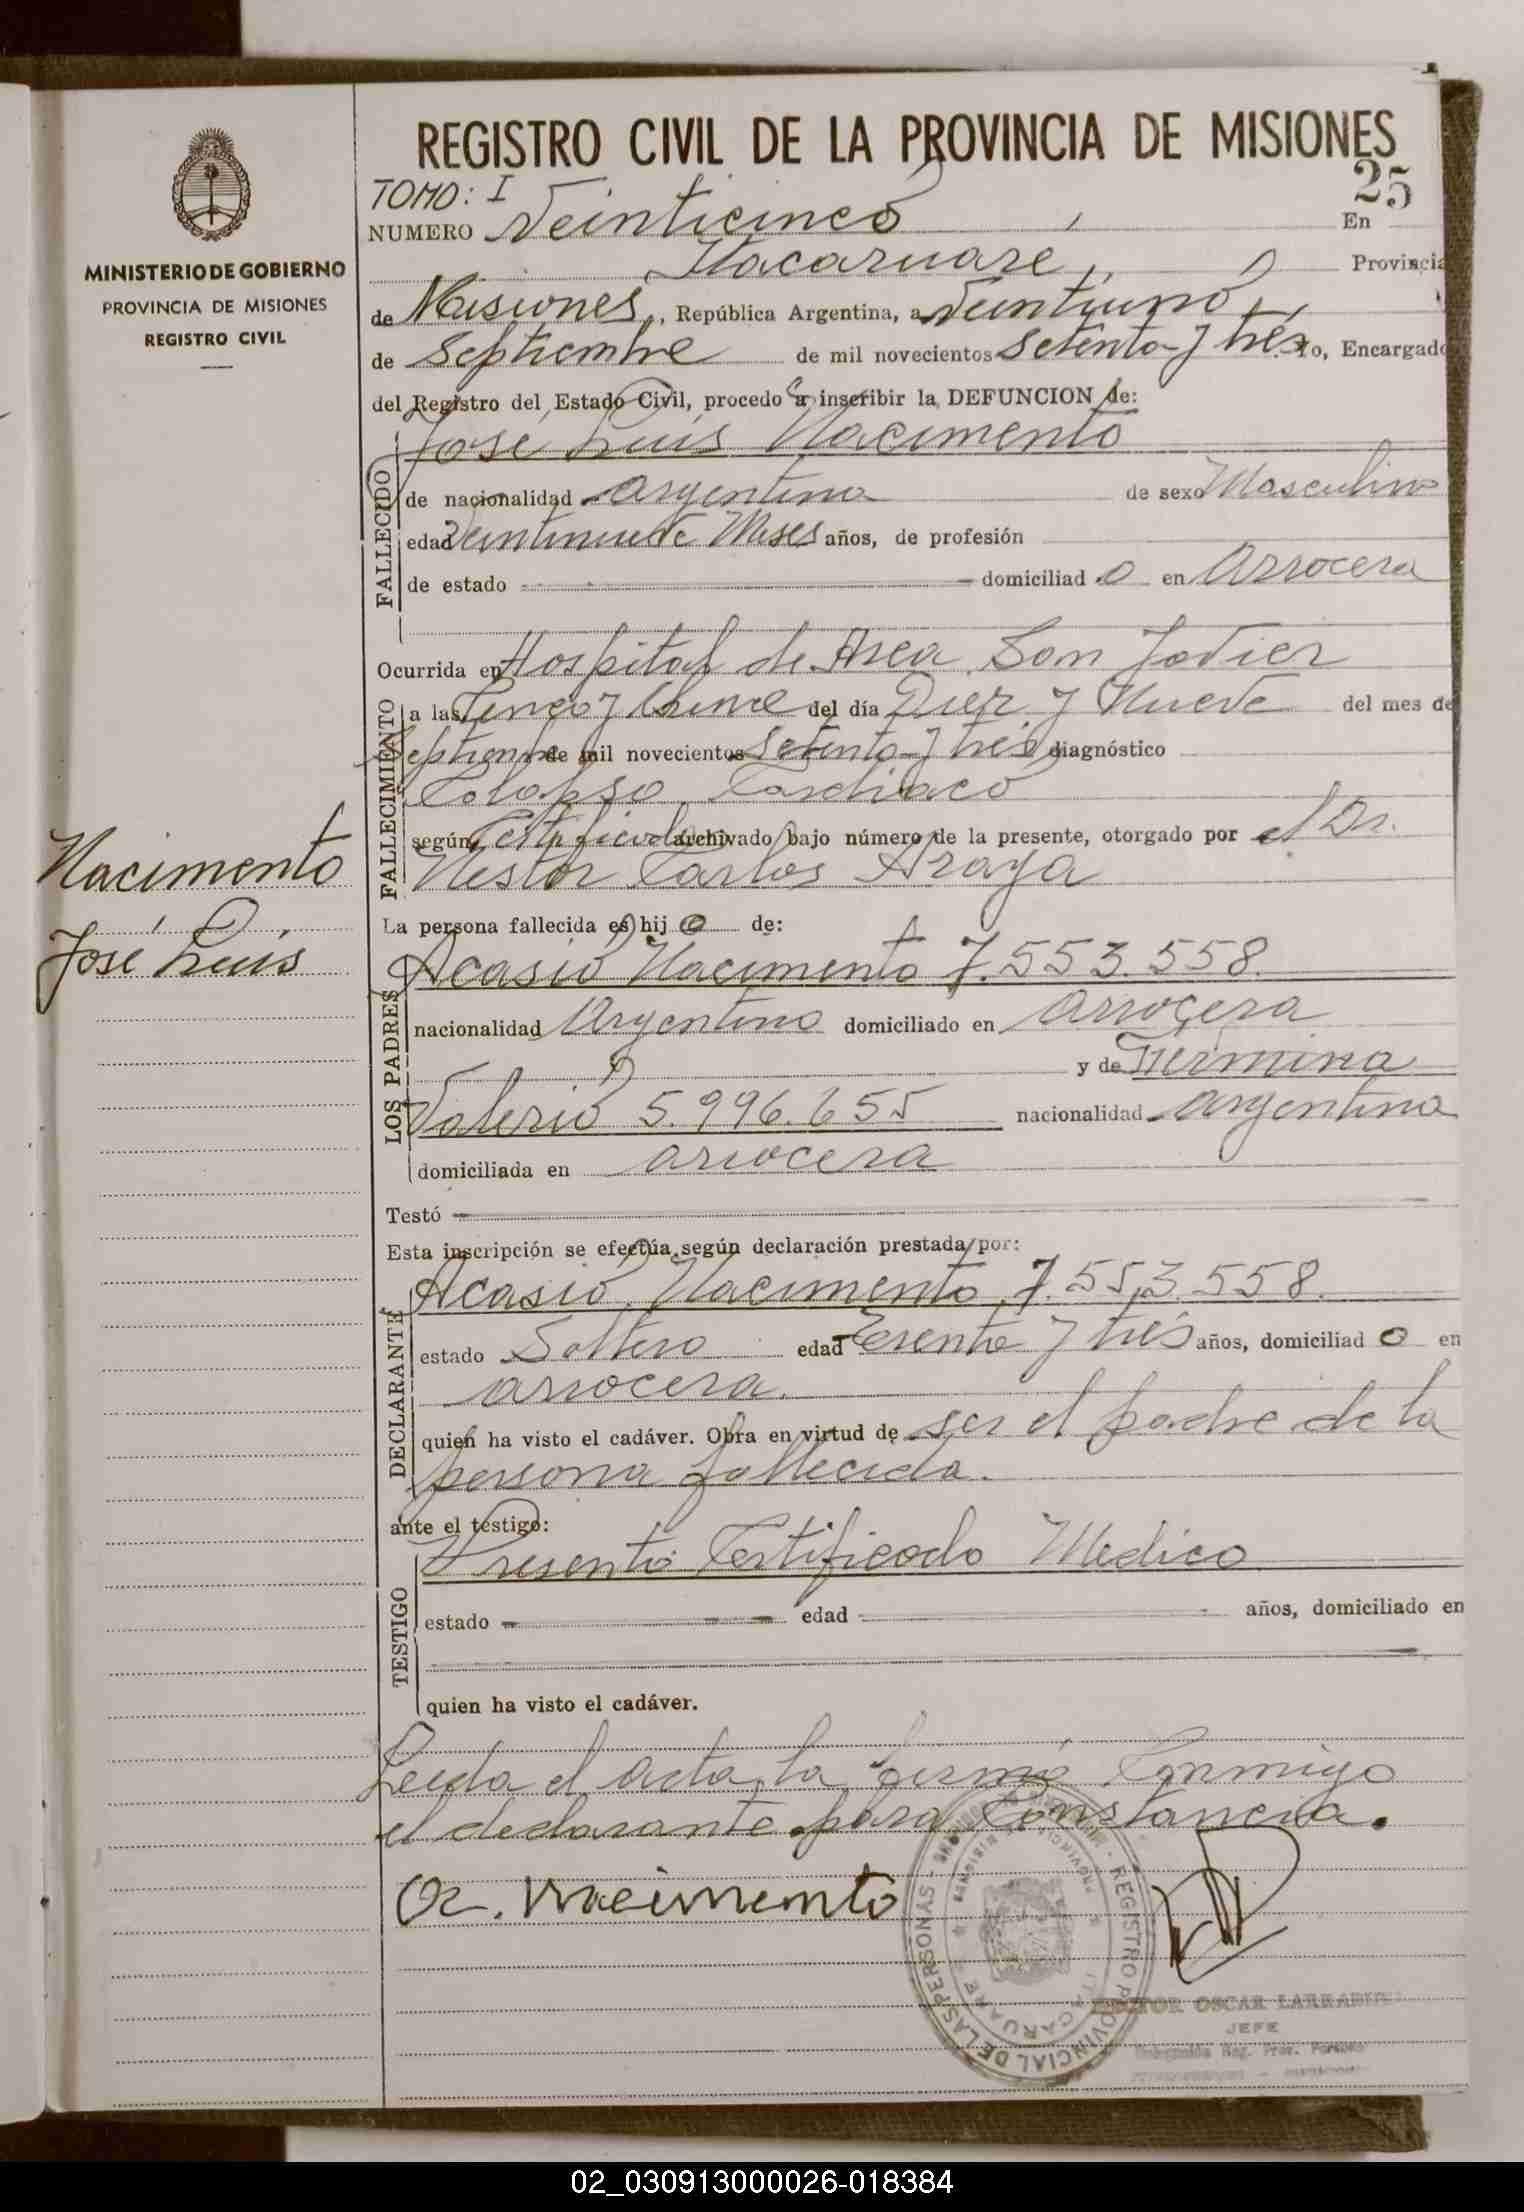 MINISTERIO DE GOBIERNO
PROVINCIA DE MISIONES
REGISTRO CIVIL
Nacimento
José Luis
REGISTRO CIVIL DE LA PROVINCIA DE MISIONES
25
TOMO: I
NUMERO Veinticinco, En
Itacaruare, Provincia
de Misiones, República Argentina, a Veintiuno,
de Septiembre de mil novecientos Setenta y tres Yo, Encargado
del Registro del Estado Civil, procedo a inscribir la DEFUNCION de:
José Luis Nacimento
FALLECIDO
de nacionalidad argentina de sexo Masculino
edad Veintinueve Meses años, de profesión
de estado domiciliad o en Arrocera
Ocurrida en Hospital de Area San Javier
FALLECIMIENTO
a las Cinco y Quince del día Diez y Nueve del mes de
Septiembre de mil novecientos Setenta y tres diagnóstico
Colapso Cardiaco
según Certificado archivado bajo número de la presente, otorgado por el Dr.
Nestor Carlos Araya
La persona fallecida es hij o de:
LOS PADRES
Acasio Nacimento 7.553.558.
nacionalidad Argentino domiciliado en Arrocera
y de Fermina
Valerio 5.996.655 nacionalidad argentina
domiciliada en arrocera
Testó
Esta inscripción se efectúa según declaración prestada por:
DECLARANTE
Acasio Nacimento 7.553.558.
estado Soltero edad Trenta y tres años, domiciliad o en
arrocera.
quien ha visto el cadáver. Obra en virtud de ser el padre de la
persona fallecida.
ante el testigo:
TESTIGO
Presentó Certificado Medico
estado edad años, domiciliado en
quien ha visto el cadáver.
Leida el acta, la firmó Conmigo
el declarante para Constancia.
Ac. Nacimento
REGISTRO PROVINCIAL DE LAS PERSONAS
ITACARUARE
OSCAR LARRA
JEFE
02_030913000026-018384